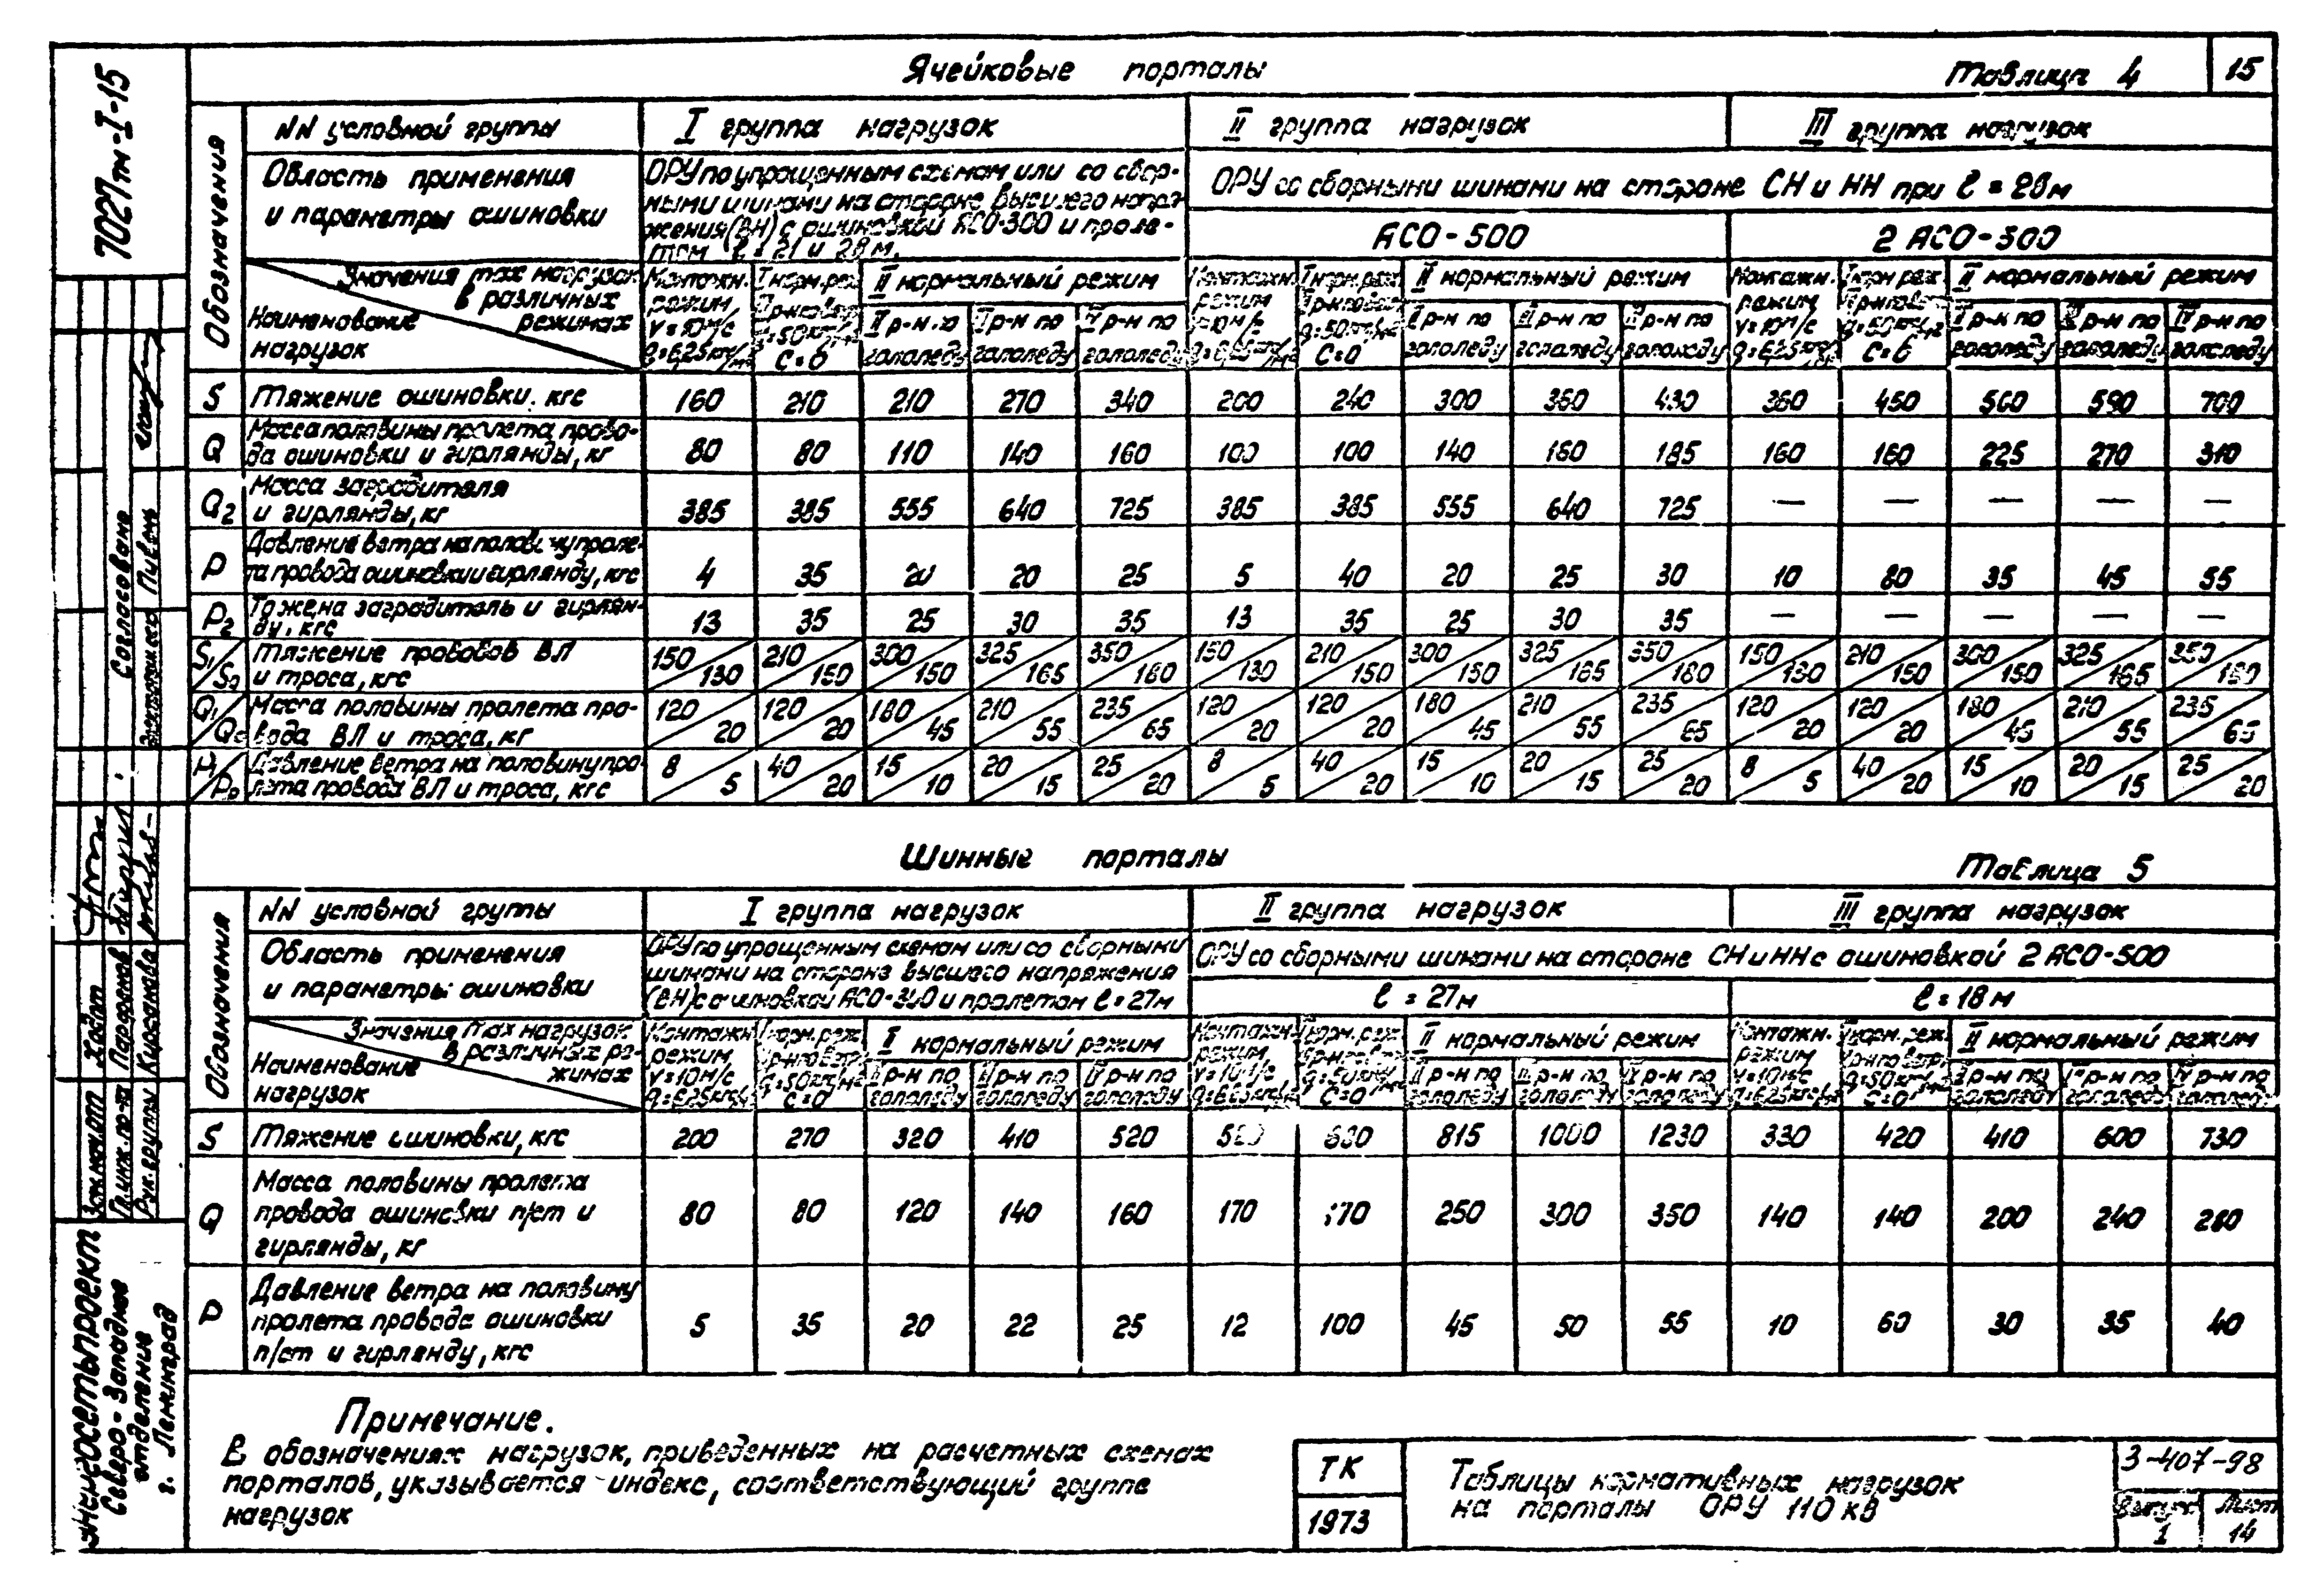 Ячейковые порталы
Таблица 4
15
7027тм-I-15
Обозначения
NN условной группы
I группа нагрузок
II группа нагрузок
III группа нагрузок
Область применения
и параметры ошиновки
ОРУ по упрощенным схемам или со сбор-
ными шинами на стороне высшего напря-
жения (ВН) с ошиновкой АСО-300 и проле-
том ℓ = 21 и 28 м.
ОРУ со сборными шинами на стороне СН и НН при ℓ = 28м
АСО-500
2 АСО-500
Значения max нагрузок
в различных
режимах
Наименование
нагрузок
Монтажн. режим V=10м/с q=6,25кгс/м²
I норм. реж. q=50кгс/м² C=0
II нормальный режим
II р-н по гололеду
III р-н по гололеду
IV р-н по гололеду
Монтажн. режим V=10м/с q=6,25кгс/м²
I норм. реж. q=50кгс/м² C=0
II нормальный режим
II р-н по гололеду
III р-н по гололеду
IV р-н по гололеду
Монтажн. режим V=10м/с q=6,25кгс/м²
I норм. реж. q=50кгс/м²
II нормальный режим
II р-н по гололеду
III р-н по гололеду
IV р-н по гололеду
S Тяжение ошиновки. кгс 160 210 210 270 340 200 240 300 360 430 360 450 500 590 700
Q Масса половины пролета прово-
да ошиновки и гирлянды, кг 80 80 110 140 160 100 100 140 160 185 160 160 225 270 310
Q2 Масса заградителя
и гирлянды, кг 385 385 555 640 725 385 385 555 640 725 — — — — —
P Давление ветра на половину проле-
та провода ошиновки и гирлянду, кгс 4 35 20 20 25 5 40 20 25 30 10 80 35 45 55
P2 То же на заградитель и гирлян-
ду, кгс 13 35 25 30 35 13 35 25 30 35 — — — — —
S1/S0 Тяжение проводов ВЛ
и троса, кгс 150/130 210/150 300/150 325/165 350/180 150/130 210/150 300/150 325/165 350/180 150/130 210/150 300/150 325/165 350/180
Q1/Q0 Масса половины пролета про-
вода ВЛ и троса, кг 120/20 120/20 180/45 210/55 235/65 120/20 120/20 180/45 210/55 235/65 120/20 120/20 180/45 210/55 235/65
P1/P0 Давление ветра на половину про-
лета провода ВЛ и троса, кгс 8/5 40/20 15/10 20/15 25/20 8/5 40/20 15/10 20/15 25/20 8/5 40/20 15/10 20/15 25/20
Шинные порталы
Таблица 5
Обозначения
NN условной группы
I группа нагрузок
II группа нагрузок
III группа нагрузок
Область применения
и параметры ошиновки
ОРУ по упрощенным схемам или со сборными
шинами на стороне высшего напряжения
(ВН) с ошиновкой АСО-300 и пролетом ℓ=27м
ОРУ со сборными шинами на стороне СН и НН с ошиновкой 2 АСО-500
ℓ = 27м
ℓ = 18 м
Значения max нагрузок
в различных ре-
жимах
Наименование
нагрузок
Монтажн. режим V=10м/с q=6,25кгс/м²
I норм. реж. q=50кгс/м² C=0
II нормальный режим
II р-н по гололеду
III р-н по гололеду
IV р-н по гололеду
Монтажн. режим V=10м/с q=6,25кгс/м²
I норм. реж. C=0
II нормальный режим
II р-н по гололеду
III р-н по гололеду
IV р-н по гололеду
Монтажн. режим V=10м/с q=6,25кгс/м²
I норм. реж. q=50кгс/м² C=0
II нормальный режим
II р-н по гололеду
III р-н по гололеду
IV р-н по гололеду
S Тяжение ошиновки, кгс 200 270 320 410 520 815 1000 1230 330 420 410 600 730
Q Масса половины пролета
провода ошиновки п/ст и
гирлянды, кг 80 80 120 140 160 170 170 250 300 350 140 140 200 240 280
P Давление ветра на половину
пролета провода ошиновки
п/ст и гирлянду, кгс 5 35 20 22 25 12 100 45 50 55 10 60 30 35 40
Примечание.
В обозначениях нагрузок, приведенных на расчетных схемах
порталов, указывается индекс, соответствующий группе
нагрузок
ТК
1973
Таблицы нормативных нагрузок
на порталы ОРУ 110 кВ
3-407-98
Выпуск
1
Лист
14
Согласовано
Пивень
Гл. инж. по-та
Рук. группы Кирсанова
Энергосетьпроект
Северо-Западное
отделение
г. Ленинград